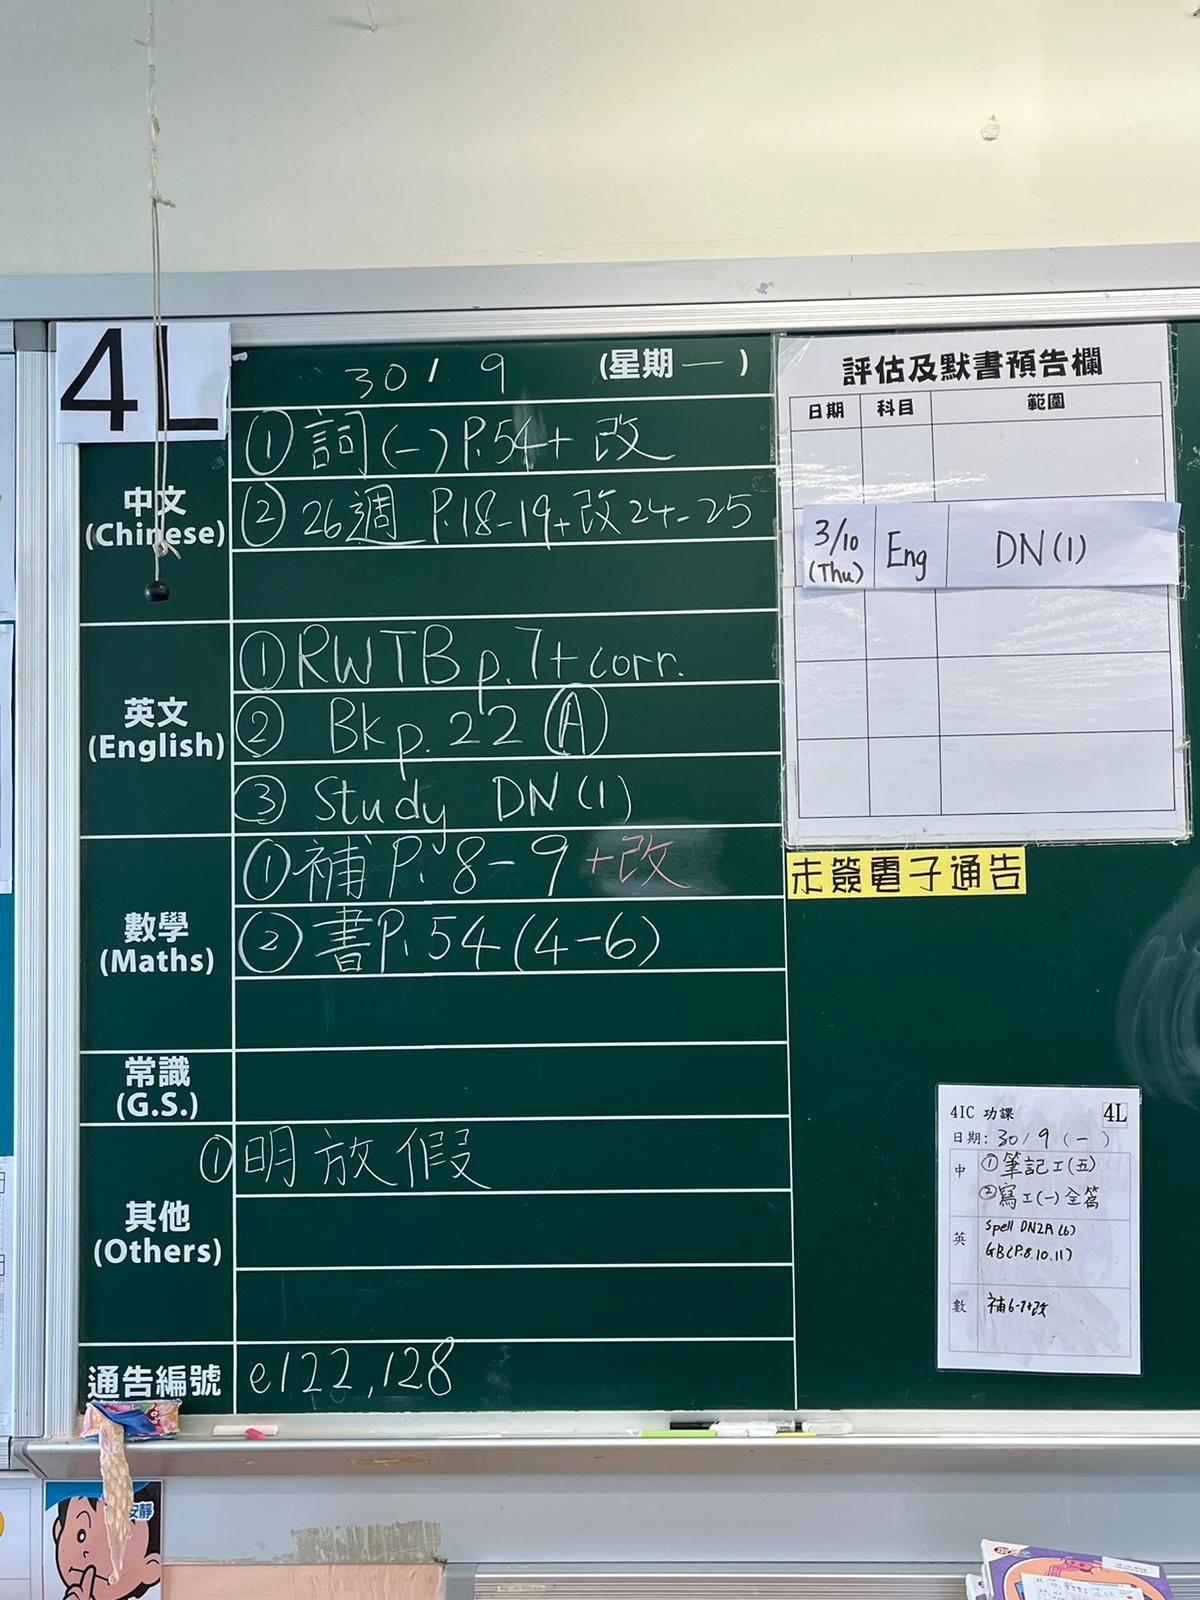 4L
30/9 (星期一)
中文
(Chinese)
① 詞(一) P.54+改
② 26週 P.18-19+改24-25
英文
(English)
① RWTB p.7+corr.
② Bk p.22 Ⓐ
③ Study DN(1)
數學
(Maths)
① 補 P.8-9+改
② 書P.54(4-6)
常識
(G.S.)
其他
(Others)
① 明放假
通告編號
e122,128
評估及默書預告欄
日期 科目 範圍
3/10 (Thu) Eng DN(1)
未簽電子通告
4IC 功課 4L
日期: 30/9 (一)
中 ① 筆記工(五)
② 寫工(一)全篇
英 Spell DN2A(6)
GB(P.8.10.11)
數 補6-7+改
安靜